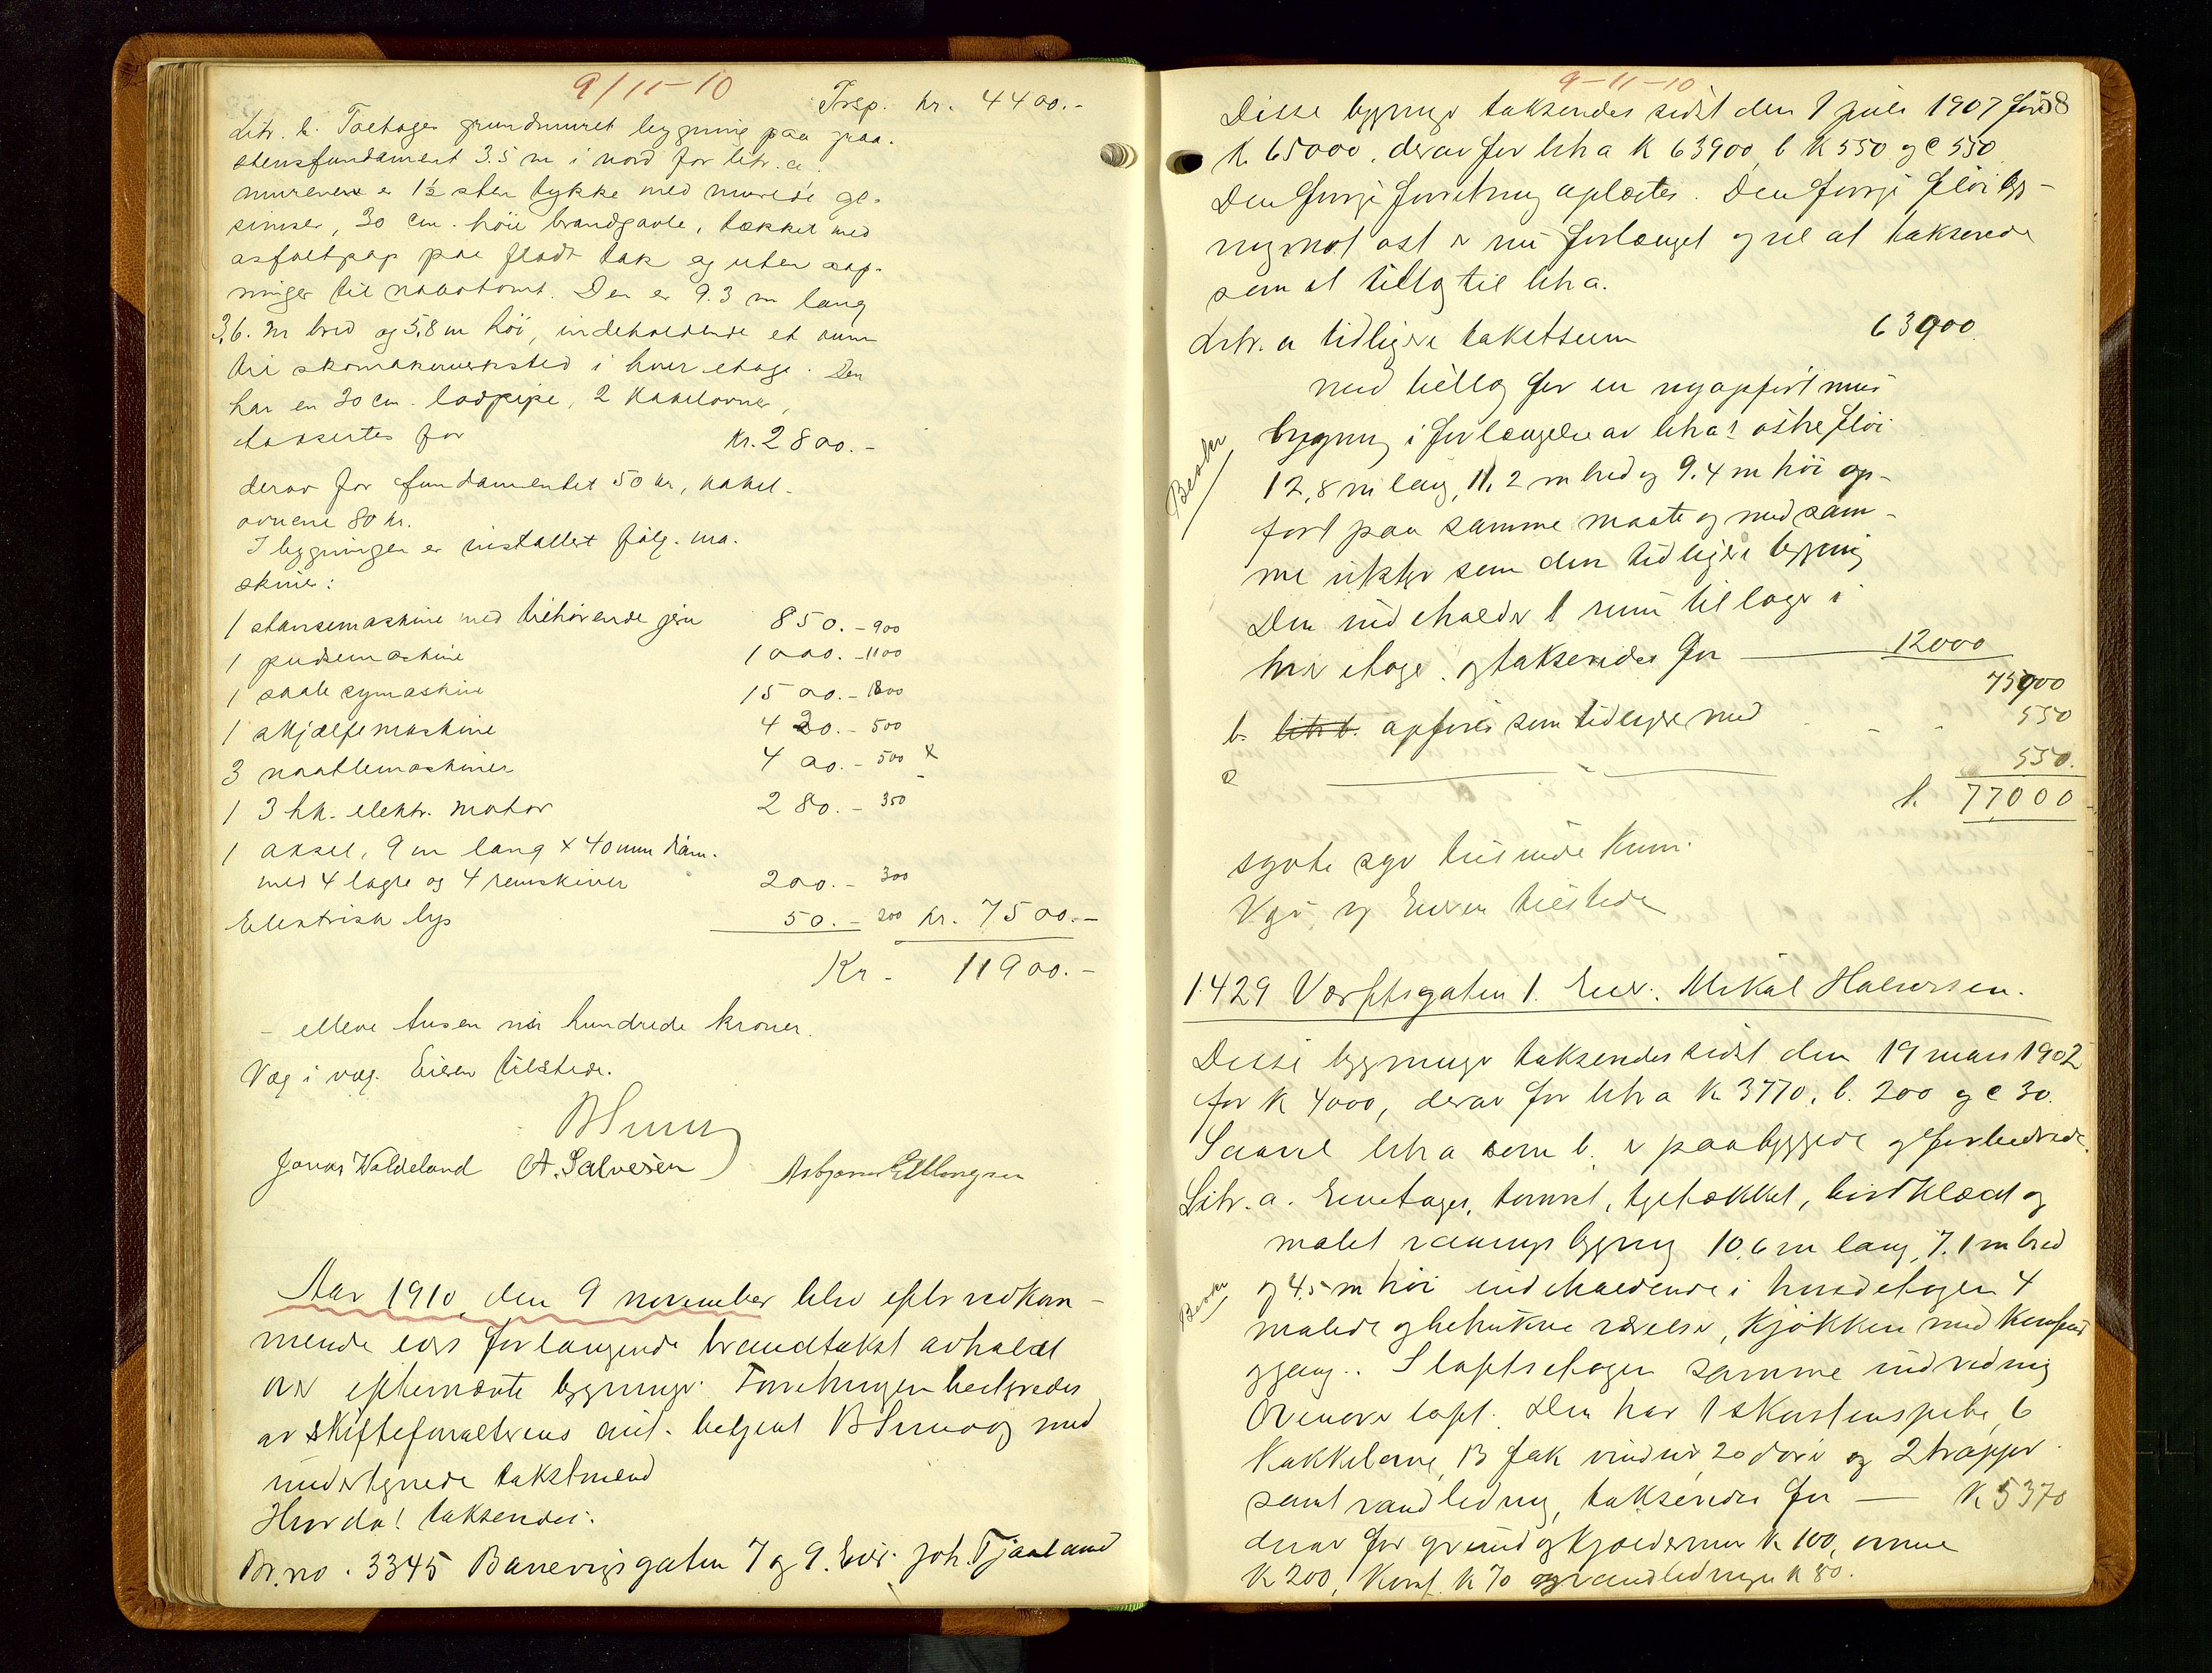 9/11-10
Trsp. kr. 4400.-
Litr. b. Toetages grundmuret bygning paa graa-
stensfundament 3.5 m i nord for litr. a.
murene er 1½ sten tykke med murede ge-
simser, 30 cm. høie brandgavle, tækket med
asfaltpap paa fladt tak og uten aap-
ninger til nabotomt. Den er 9.3 m lang
3,6. m bred og 5,8 m høi, indeholdende et rum
til skomakerverksted i hver etage. Den
har en 20 cm. lodpipe, 2 kakelovner,
taksertes for kr. 2800.-
derav for fundamentet 50 kr, kakel-
ovnene 80 kr.
I bygningen er installert følg. ma-
skiner:
1 stansemaskine med tilhørende jern 850.- 900
1 pudsemaskine 1000.- 1100
1 saale symaskine 1500.- 1800
1 skjælfemaskine 420.- 500
3 naatlemaskiner 400.- 500 x
1 3 hk. elektr. motor 280.- 350
1 aksel, 9 m lang x 40 mm diam.
med 4 lagre og 4 remskiver 200.- 300
Elektrisk lys 50.- 200 kr. 7500.-
Kr. 11900.-
- elleve tusen ni hundrede kroner.
Væg i væg. Eieren tilstede.
Jonas Waldeland A. Salvesen Asbjørn Ellingsen
Aar 1910 den 9 november blev efter vedkom-
mende eiers forlangende brandtakst avholdt
over efternævnte bygninger. Forretningen bestyredes
av skifteforvalterens aut. betjent B Sunn og med
undertegnede takstmænd
Hvorda! taksendes:
Br.no. 3345 Banevigsgaten 7 og 9. Eier: Joh. Tjaaland
9-11-10
58
Disse bygninger taksendes sidst den 1 juli 1907 for
K 65000, derav for litra a K 63900, b K 550 og c 550
Den forrige forretning oplæstes. Den forrige fløibyg-
ning mot øst er nu forlænget og vil at taksendes
som et tillæg til litr a.
Litr. a tidligere takstsum 63900
med tillæg for en nyopført mur
bygning i forlængelse av litr a's østre fløi
12,8 m lang, 11,2 m bred og 9.4 m høi op-
ført paa samme maate og med sam-
me utstyr som den tidligere bygning
Den indeholder 1 rum til lager i
hver etage. og taksendes for 12000
75900
b. litr b. opføres som tidligere med 550
c 550.
k. 77,000
sytti syv tusinde kroner.
Vgv og Eieren tilstede
1429 Værftsgaten 1. Eier. Mikal Halvorsen.
Disse bygninger taksendes sidst den 19 mars 1902
for K 4000, derav for litr a K 3770, b. 200 og c 30.
Saavel litr a som b. er paabyggede og forbedrede.
Litr. a. Enetages, tømret, tegltækket, bordklædt og
malet vaaningsbygning 10,6 m lang, 7.1 m bred
og 4.5 m høi indeholdende i hovedetagen 4
malede og betrukne værelser, kjøkken med komfur
og gang.. I loftsetagen samme indredning
Ovenover loft. Den har 1 skorstenspibe, 6
kakkelovne, 13 fak vinduer, 20 døre og 2 trapper
samt vandledning, taksendes for — K 5370
derav for grund og kjældermur k 100, ovnene
K 200, komf. K 70 og vandledningen K 80.